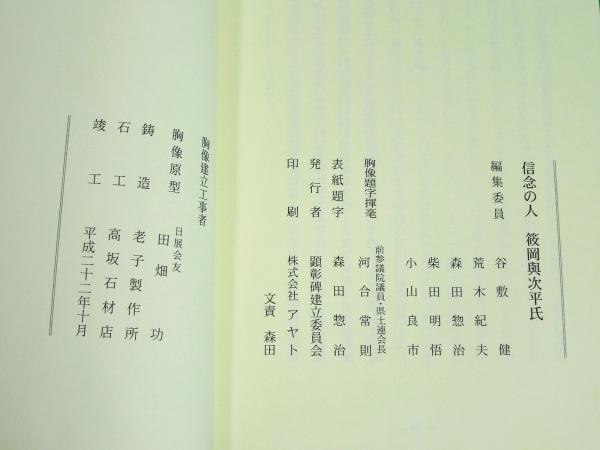 信念の人 筱岡與次平氏
編集委員 谷敷健
荒木紀夫
森田惣治
柴田明悟
小山良市
胸像題字揮毫 前参議院議員・県土連会長 河合常則
表紙題字 森田惣治
発行者 顕彰碑建立委員会
印刷 株式会社アヤト
文責 森田
胸像建立工事者
胸像原型 日展会友 田畑功
鋳造 老子製作所
石工 高坂石材店
竣工 平成二十二年十月